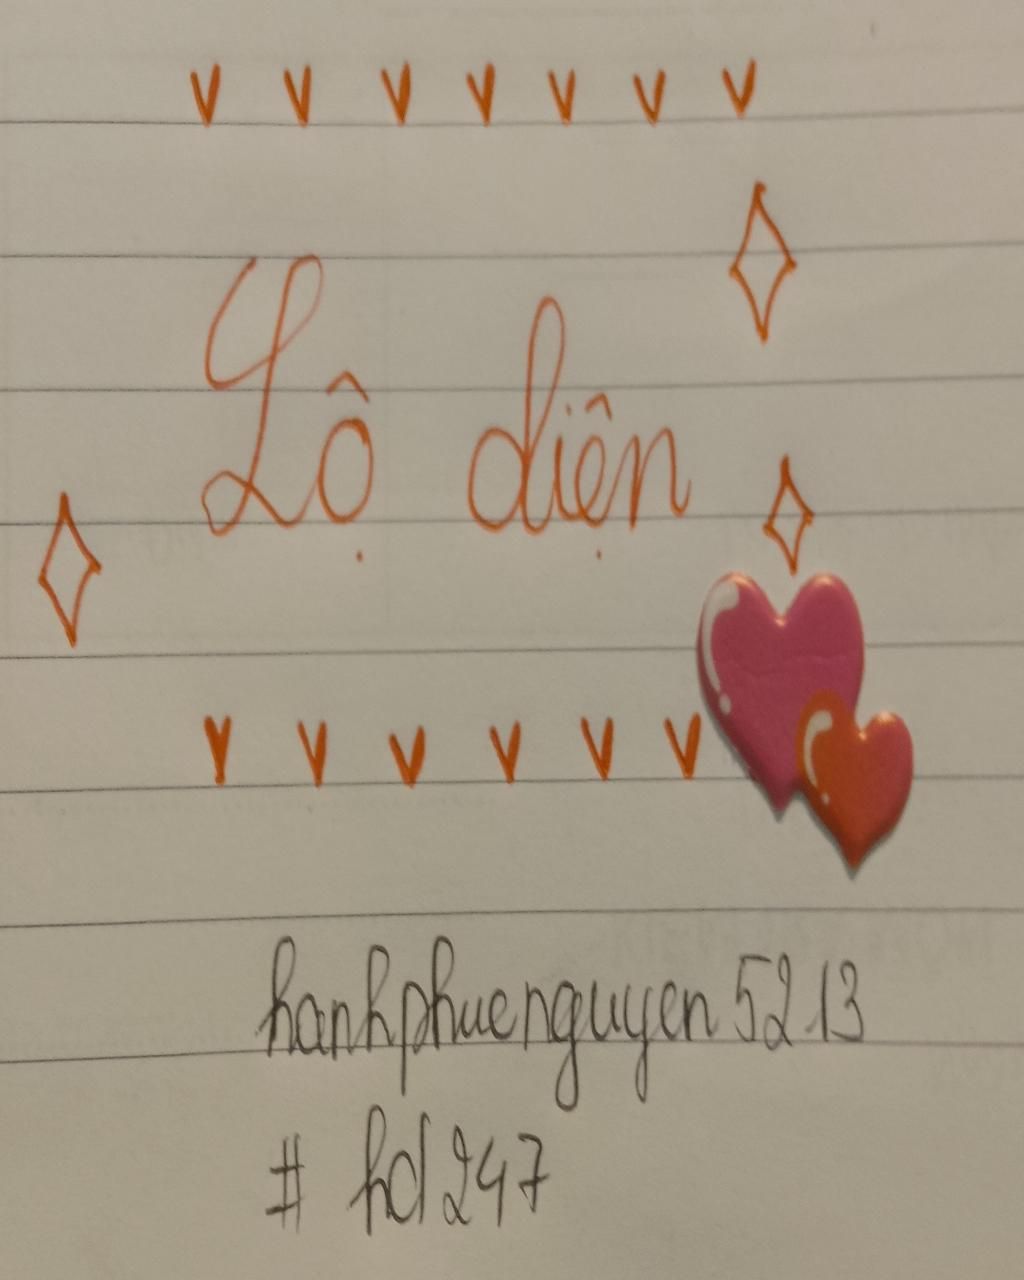 Lộ diện
hanhphucnguyen5213
# hd247